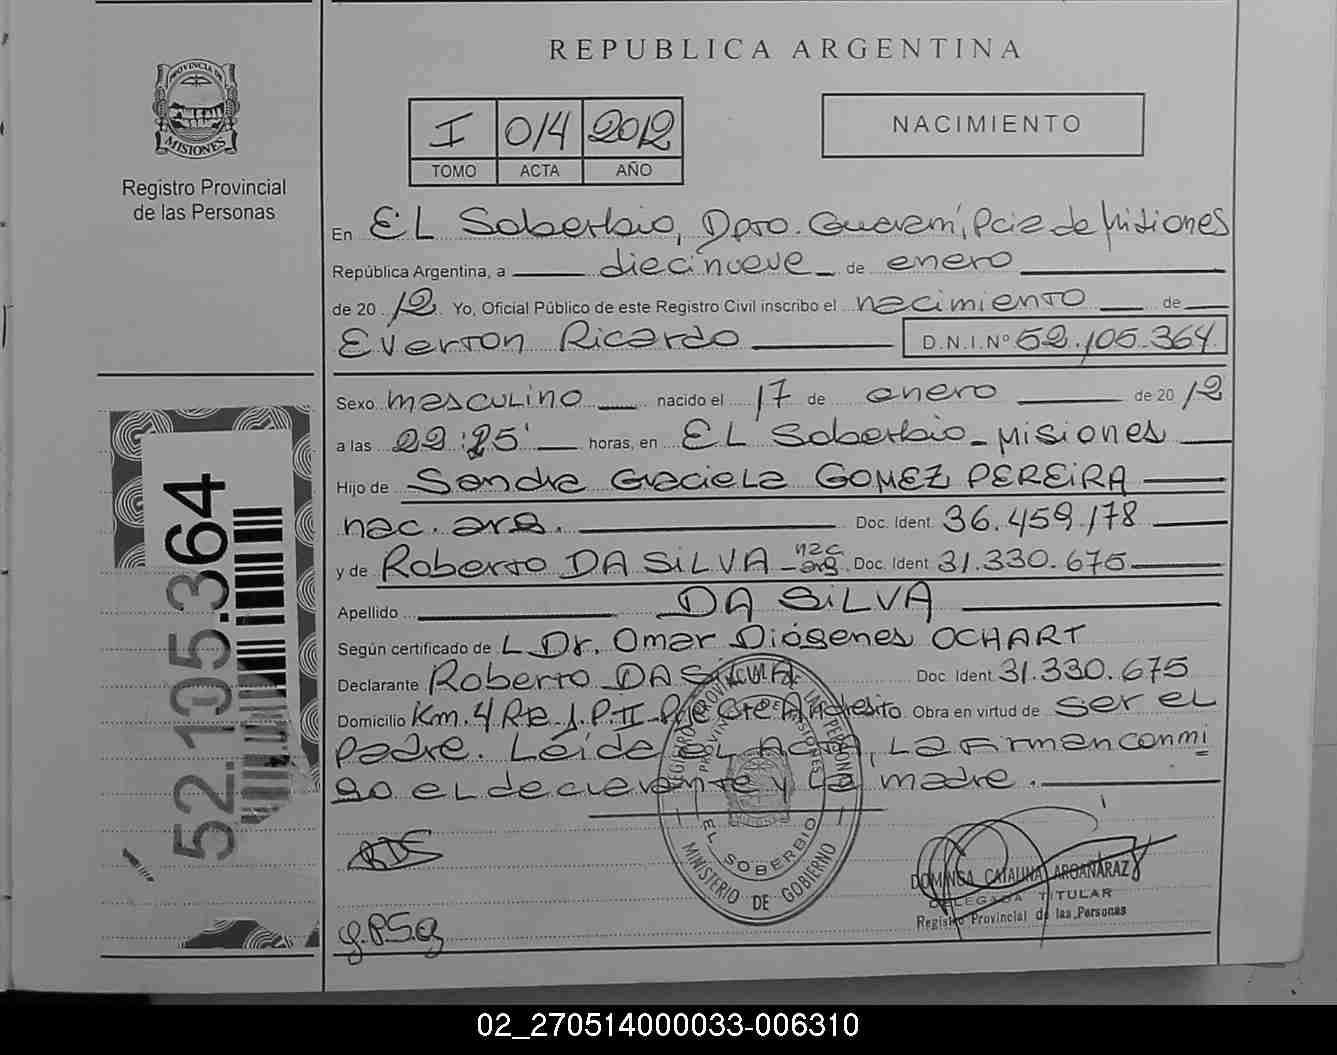 REPUBLICA ARGENTINA
PROVINCIA DE
MISIONES
Registro Provincial
de las Personas
I 014 2012
TOMO ACTA AÑO
NACIMIENTO
En EL Soberbio, Dpto. Guaraní, Pcia de Misiones
República Argentina, a diecinueve de enero
de 2012 Yo, Oficial Público de este Registro Civil inscribo el nacimiento de
Everton Ricardo D.N.I.Nº 52.105.364
Sexo masculino nacido el 17 de enero de 2012
a las 22:25' horas, en EL Soberbio - Misiones
Hijo de Sandra Graciela GOMEZ PEREIRA
nac. arg. Doc. Ident. 36.459.178
y de Roberto DA SILVA - nac arg. Doc. Ident 31.330.675
Apellido DA SILVA
Según certificado de L Dr. Omar Diógenes OCHART
Declarante Roberto DA SILVA Doc. Ident. 31.330.675
Domicilio Km. 4 R2 J.P.II Pje Cte Andresito Obra en virtud de ser el
padre. Leída el Acta, La firman conmi
go el declarante y la madre.
52.105.364
REGISTRO PROVINCIAL DE LAS PERSONAS
PROVINCIA DE MISIONES
EL SOBERBIO
MINISTERIO DE GOBIERNO
RDS
DOMINGA CATALINA ARGAÑARAZ
DELEGADA TITULAR
Registro Provincial de las Personas
02_270514000033-006310